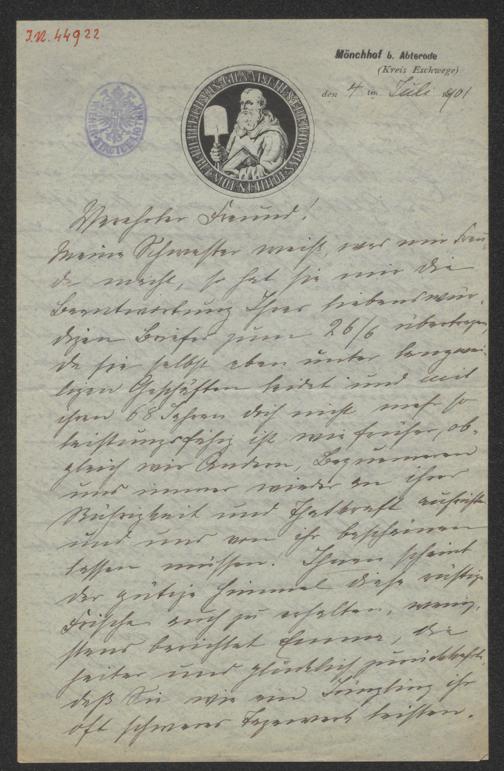 I.N. 44922
Mönchhof b. Abterode
(Kreis Eschwege)
den 4 ten Juli 1901
Verehrter Freund!
Meine Schwester weiß, was mir Freu-
de macht, so hat sie mir die
Beantwortung Ihres liebenswür-
digen Briefes zum 26/6 übertragen,
da sie selbst eben unter langwei-
ligen Geschäften leidet und mit
ihren 68 Jahren doch nicht mehr so
leistungsfähig ist wie früher, ob-
gleich wir Andern, Bequemeren
uns immer wieder an ihrer
Rührigkeit und Thatkraft aufrichten
und uns von ihr beschämen
lassen müssen. Ihnen scheint
der gütige Himmel diese rüstige
Frische auch zu erhalten, wenig-
stens berichtet Emma, die
heiter und glücklich zurückkehrte,
daß Sie wie ein Jüngling Ihr
oft schweres Tagewerk leisten.